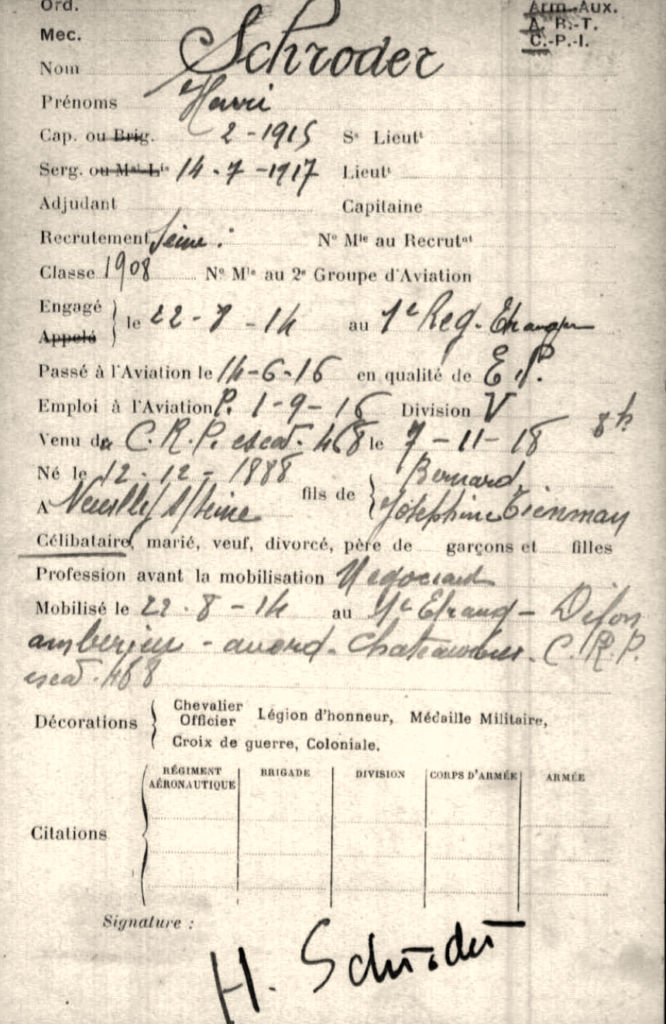 Ord.
Arm-Aux.
A. R.-T.
Mec.
C.-P.-I.
Nom Schroder
Prénoms Henri
Cap. ou Brig. 2-1915 Ss Lieutt
Serg. ou Mal Lis 14-7-1917 Lieutt
Adjudant Capitaine
Recrutement Seine. No Mle au Recrutnt
Classe 1908 No Mle au 2e Groupe d'Aviation
Engagé
Appelé } le 22-7-14 au 1e Reg. Etranger
Passé à l'Aviation le 14-6-16 en qualité de E.P.
Emploi à l'Aviation P. 1-9-16 Division V
Venu de C.R.P. escad. 468 le 7-11-18 8h
Né le 12-12-1888 fils de { Bernard
A Neuilly s/Seine Joséphine
Célibataire, marié, veuf, divorcé, père de garçons et filles
Profession avant la mobilisation Negociant
Mobilisé le 22.8-14 au 1e Etrang - Dijon
amberieu - avord - Chateauroux - C.R.P.
escad. 468
Décorations { Chevalier
Officier Légion d'honneur, Médaille Militaire,
Croix de guerre, Coloniale.
Citations RÉGIMENT AÉRONAUTIQUE BRIGADE DIVISION CORPS D'ARMÉE ARMÉE
Signature :
H. Schröder